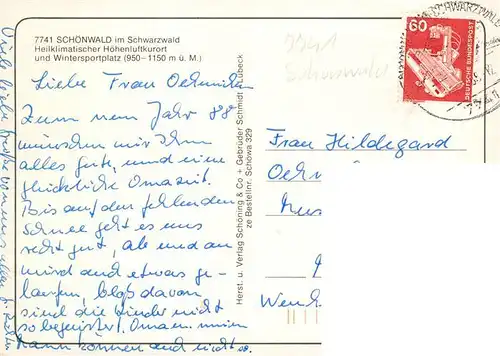 7741 SCHÖNWALD im Schwarzwald
Heilklimatischer Höhenluftkurort
und Wintersportplatz (950–1150 m ü. M.)
Liebe Frau
Zum neuen Jahr 88
wünschen wir Ihn
alles Gute, und eine
glückliche Omazeit.
Bis auf den fehlenden
Schnee geht es uns
recht gut, ab und an
wird auch etwas ge-
laufen, bloß davon
sind die Kinder nicht
so begeistert. Oma
kann können auch nicht so.
Viele liebe Grüße von uns allen
Herst. u. Verlag Schöning & Co + Gebrüder Schmidt Lübeck
ze Bestellnr. Schöwa 329
7741
Schönwald
SCHWARZWALD
60
DEUTSCHE BUNDESPOST
Frau Hildegard